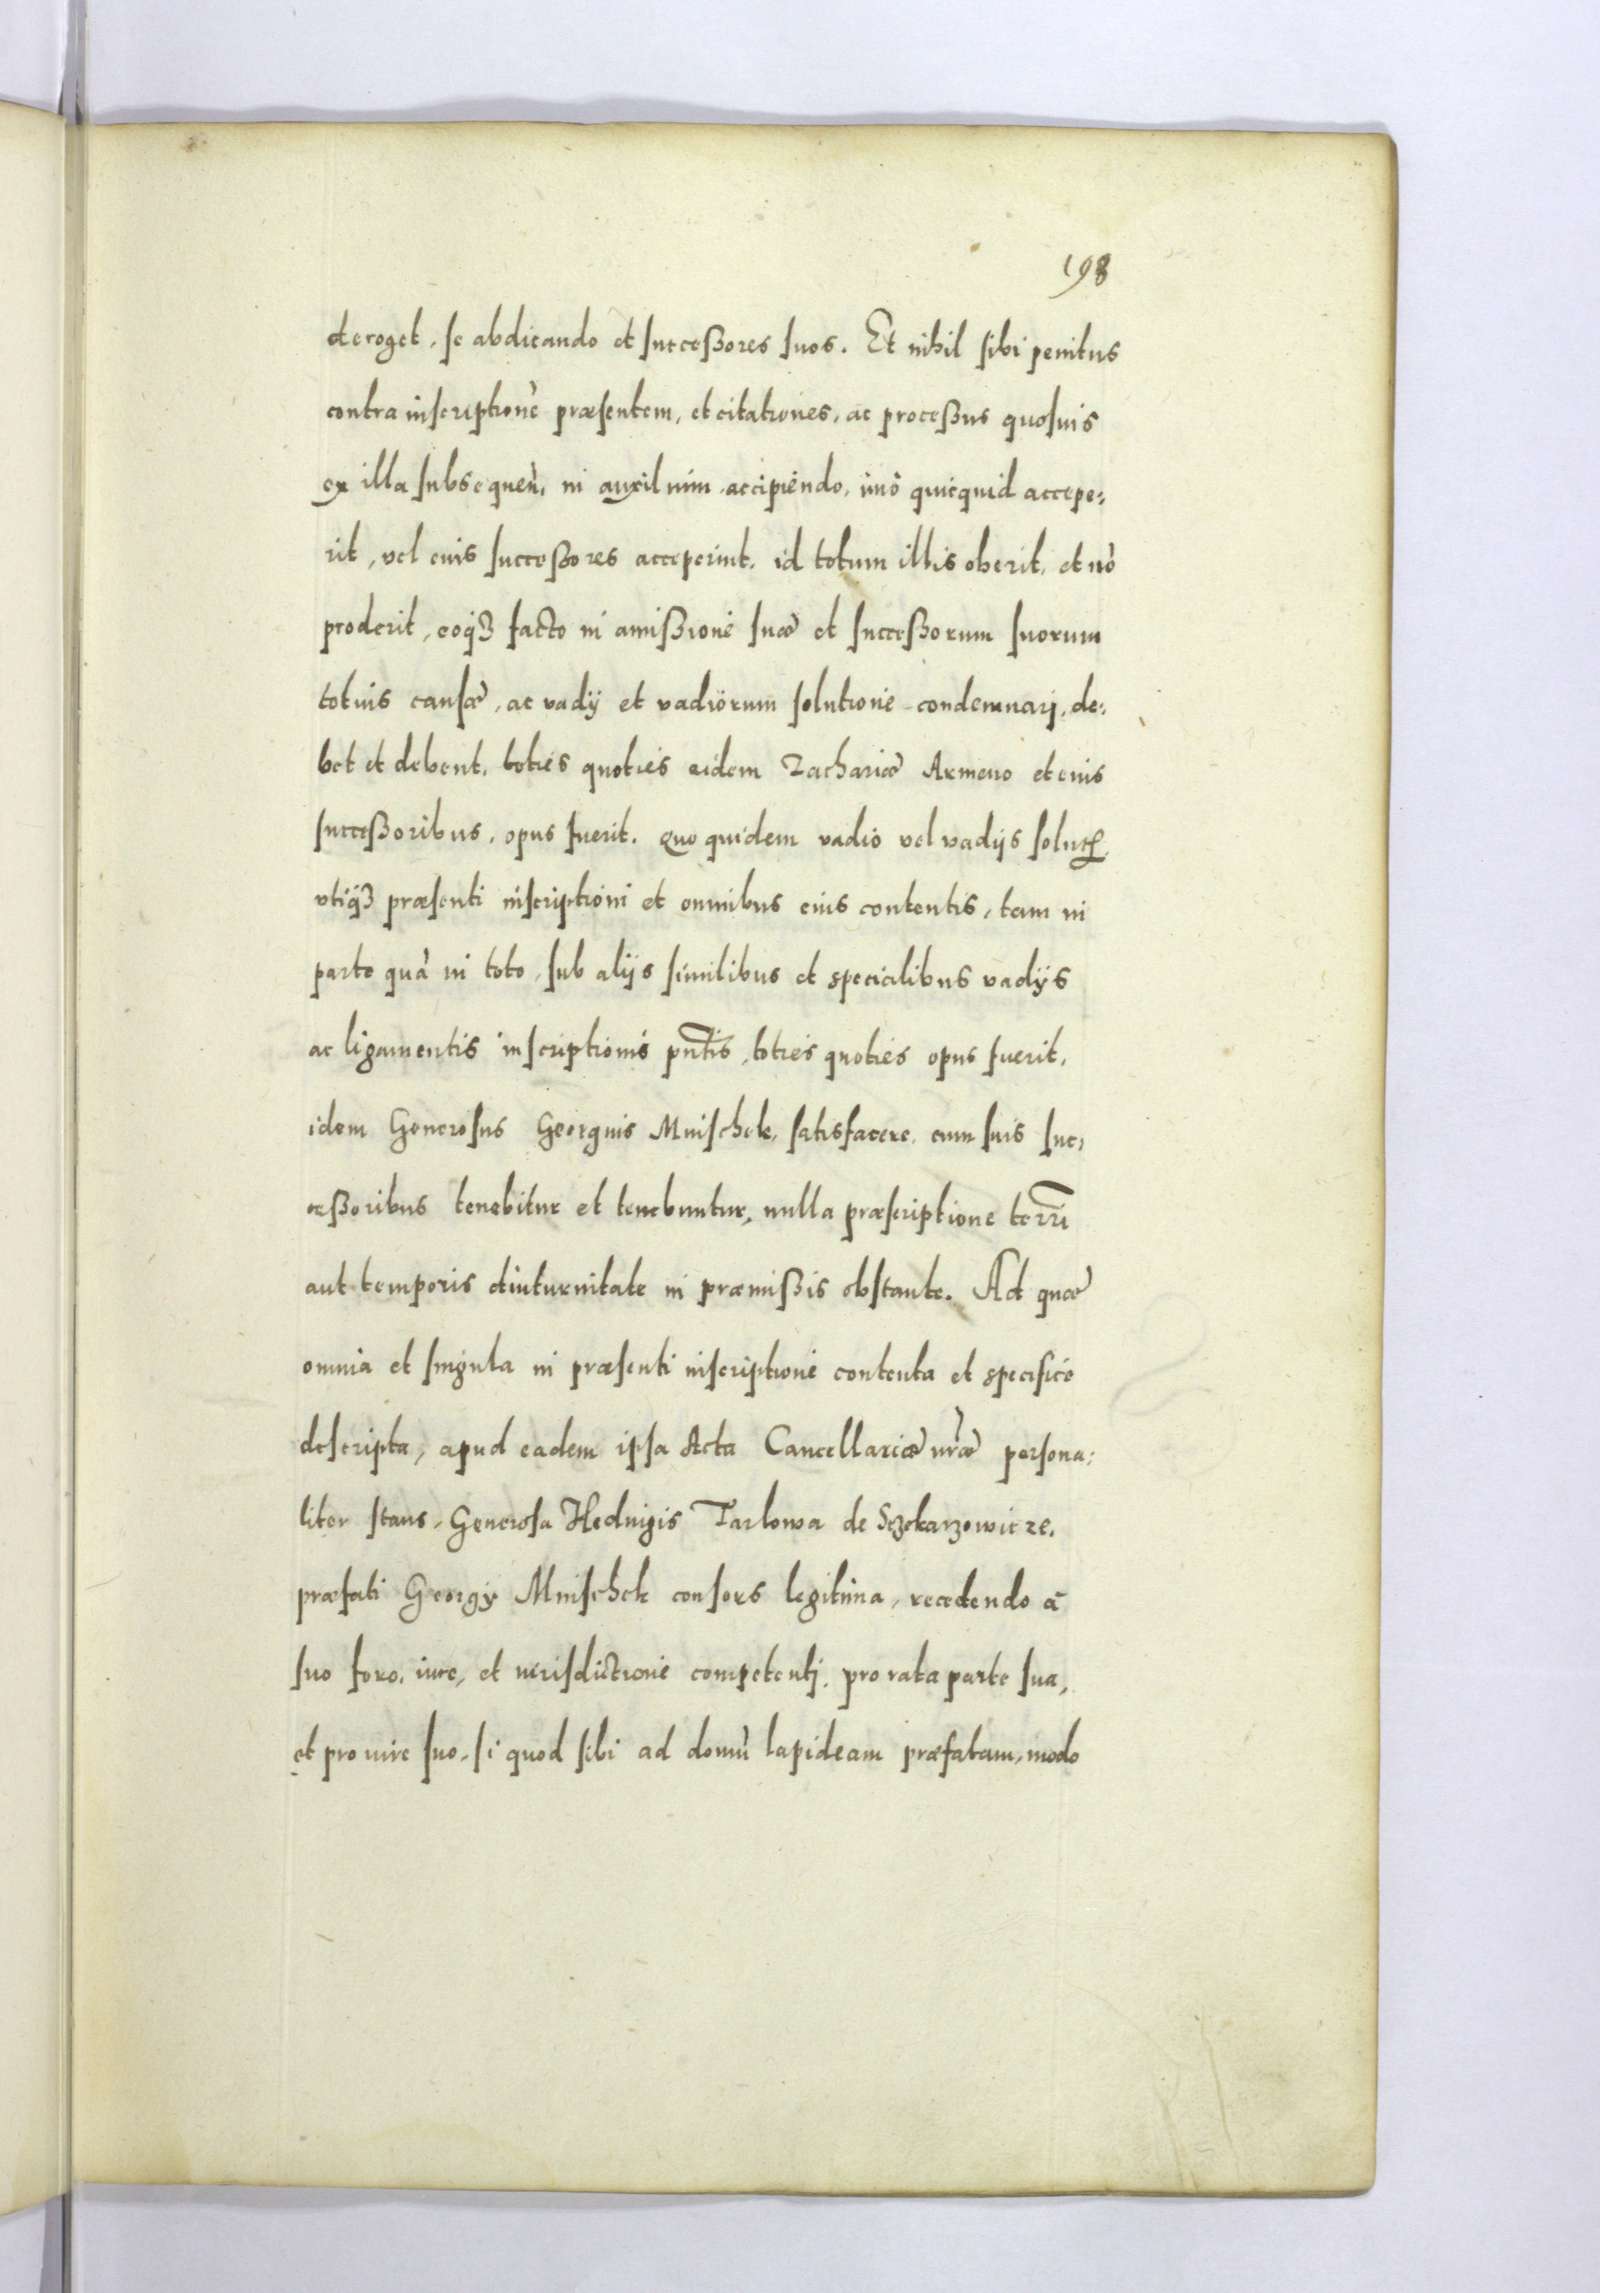 198
deroget, se abdicando et succeßores suos. Et nihil sibi penitus
contra inscriptionē præsentem, et citationes, ac proceßus quosuis
ex illa subsequeñ, in auxilium accipiendo, imò quicquid accepe:
rit, vel eius succeßores acceperint, id totum illis oberit, et nō
proderit, eoq3 facto in amißione suæ et succeßorum suorum
totius causæ, ac vadÿ et vadiorum solutione condemnarj, de:
bet et debent, toties quoties eidem Zachariæ Armeno et eius
succeßoribus, opus fuerit. Quo quidem vadio vel vadijs solut
vtiq3 præsenti inscriptioni et omnibus eius contentis, tam in
parte quā in toto, sub alijs similibus et specialibus vadÿs
ac ligamentis inscriptionis pn̄tis, toties quoties opus fuerit,
idem Generosus Georgius Mnischek, satisfacere, cum suis suc:
ceßoribus tenebitur et tenebuntur, nulla præscriptione terrī
aut temporis diuturnitate in præmißis obstante. Ad quæ
omnia et singula in præsenti inscriptione contenta et specifice
descripta, apud eadem ipsa Acta Cancellariæ nr̄æ persona:
liter stans, Generosa Heduigis Tarlowa de Sczekarzowicze,
præfati Georgÿ Mnischek consors legitima, recedendo à
suo foro, iure, et iurisdictione competentj, pro rata parte sua,
et pro iure suo, si quod sibi ad domū lapideam præfatam, modo